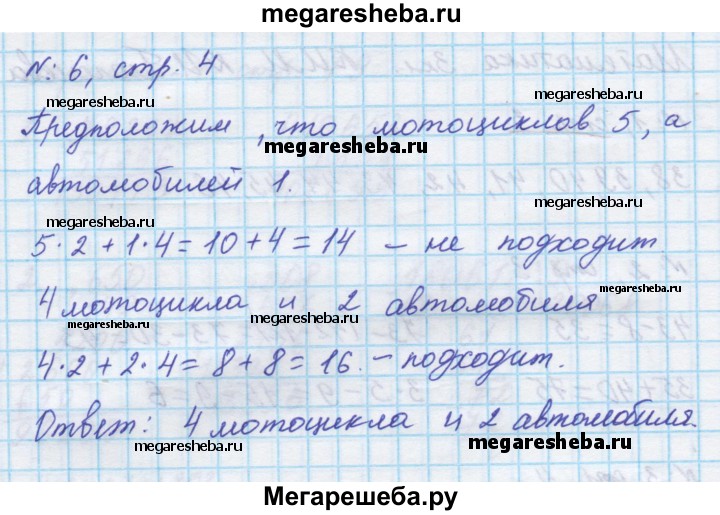 megaresheba.ru
№ 6, стр. 4
megaresheba.ru megaresheba.ru
Предположим, что мотоциклов 5, а
megaresheba.ru
автомобилей 1.
megaresheba.ru megaresheba.ru
5·2+1·4=10+4=14 – не подходит
4 мотоцикла и 2 автомобиля
megaresheba.ru megaresheba.ru megaresheba.ru
4·2+2·4=8+8=16. – подходит.
Ответ: 4 мотоцикла и 2 автомобиля.
megaresheba.ru megaresheba.ru
Мегарешеба.ру